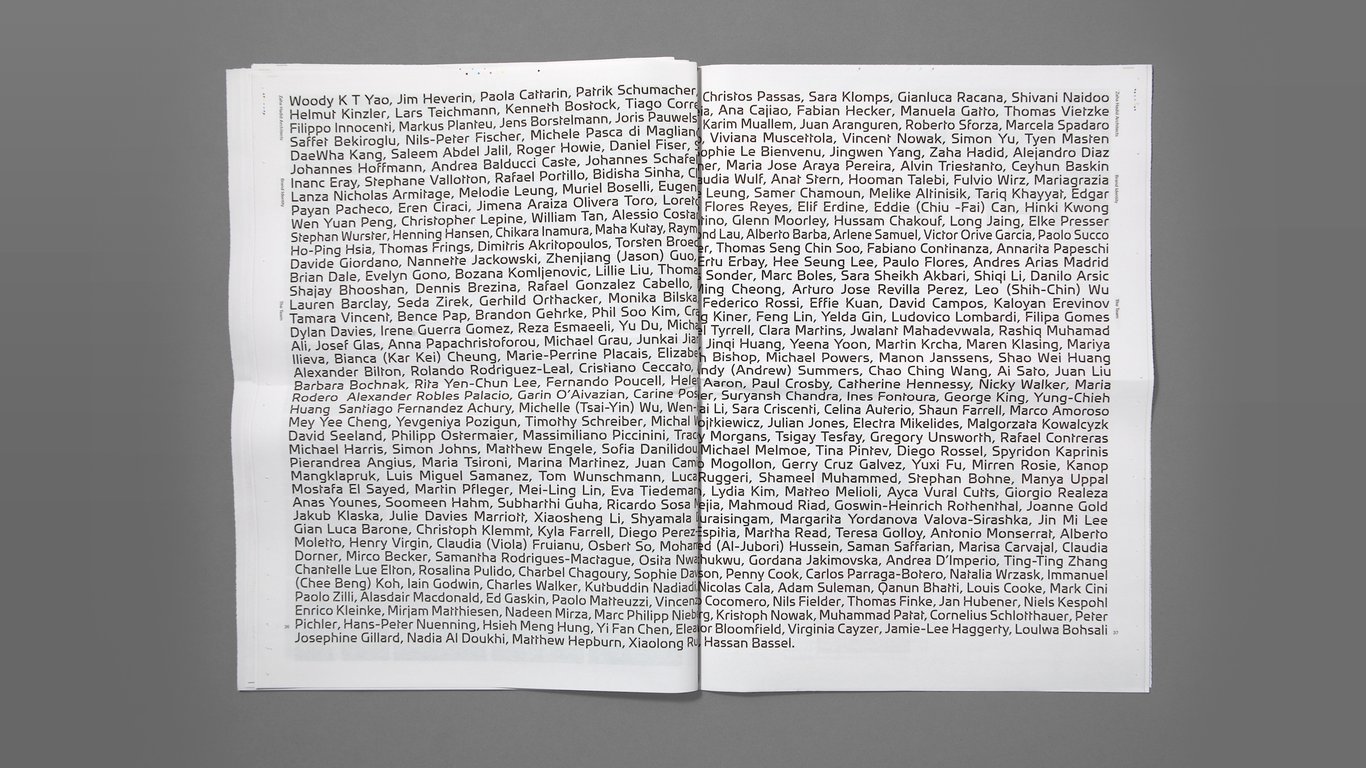 Zaha Hadid Architects
Brand Identity
The Team
Woody K T Yao, Jim Heverin, Paola Cattarin, Patrik Schumacher, Christos Passas, Sara Klomps, Gianluca Racana, Shivani Naidoo
Helmut Kinzler, Lars Teichmann, Kenneth Bostock, Tiago Correia, Ana Cajiao, Fabian Hecker, Manuela Gatto, Thomas Vietzke
Filippo Innocenti, Markus Planteu, Jens Borstelmann, Joris Pauwels, Karim Muallem, Juan Aranguren, Roberto Sforza, Marcela Spadaro
Saffet Bekiroglu, Nils-Peter Fischer, Michele Pasca di Magliano, Viviana Muscettola, Vincent Nowak, Simon Yu, Tyen Masten
DaeWha Kang, Saleem Abdel Jalil, Roger Howie, Daniel Fiser, Sophie Le Bienvenu, Jingwen Yang, Zaha Hadid, Alejandro Diaz
Johannes Hoffmann, Andrea Balducci Caste, Johannes Schafelner, Maria Jose Araya Pereira, Alvin Triestanto, Ceyhun Baskin
Inanc Eray, Stephane Vallotton, Rafael Portillo, Bidisha Sinha, Claudia Wulf, Anat Stern, Hooman Talebi, Fulvio Wirz, Mariagrazia
Lanza Nicholas Armitage, Melodie Leung, Muriel Boselli, Eugene Leung, Samer Chamoun, Melike Altinisik, Tariq Khayyat, Edgar
Payan Pacheco, Eren Ciraci, Jimena Araiza Olivera Toro, Loreto Flores Reyes, Elif Erdine, Eddie (Chiu -Fai) Can, Hinki Kwong
Wen Yuan Peng, Christopher Lepine, William Tan, Alessio Costantino, Glenn Moorley, Hussam Chakouf, Long Jaing, Elke Presser
Stephan Wurster, Henning Hansen, Chikara Inamura, Maha Kutay, Raymond Lau, Alberto Barba, Arlene Samuel, Victor Orive Garcia, Paolo Succo
Ho-Ping Hsia, Thomas Frings, Dimitris Akritopoulos, Torsten Broeder, Thomas Seng Chin Soo, Fabiano Continanza, Annarita Papeschi
Davide Giordano, Nannette Jackowski, Zhenjiang (Jason) Guo, Ertu Erbay, Hee Seung Lee, Paulo Flores, Andres Arias Madrid
Brian Dale, Evelyn Gono, Bozana Komljenovic, Lillie Liu, Thomas Sonder, Marc Boles, Sara Sheikh Akbari, Shiqi Li, Danilo Arsic
Shajay Bhooshan, Dennis Brezina, Rafael Gonzalez Cabello, Ming Cheong, Arturo Jose Revilla Perez, Leo (Shih-Chin) Wu
Lauren Barclay, Seda Zirek, Gerhild Orthacker, Monika Bilska, Federico Rossi, Effie Kuan, David Campos, Kaloyan Erevinov
Tamara Vincent, Bence Pap, Brandon Gehrke, Phil Soo Kim, Craig Kiner, Feng Lin, Yelda Gin, Ludovico Lombardi, Filipa Gomes
Dylan Davies, Irene Guerra Gomez, Reza Esmaeeli, Yu Du, Michael Tyrrell, Clara Martins, Jwalant Mahadevwala, Rashiq Muhamad
Ali, Josef Glas, Anna Papachristoforou, Michael Grau, Junkai Jian, Jinqi Huang, Yeena Yoon, Martin Krcha, Maren Klasing, Mariya
Ilieva, Bianca (Kar Kei) Cheung, Marie-Perrine Placais, Elizabeth Bishop, Michael Powers, Manon Janssens, Shao Wei Huang
Alexander Bilton, Rolando Rodriguez-Leal, Cristiano Ceccato, Andy (Andrew) Summers, Chao Ching Wang, Ai Sato, Juan Liu
Barbara Bochnak, Rita Yen-Chun Lee, Fernando Poucell, Helen Aaron, Paul Crosby, Catherine Hennessy, Nicky Walker, Maria
Rodero Alexander Robles Palacio, Garin O'Aivazian, Carine Poser, Suryansh Chandra, Ines Fontoura, George King, Yung-Chieh
Huang Santiago Fernandez Achury, Michelle (Tsai-Yin) Wu, Wen-Kai Li, Sara Criscenti, Celina Auterio, Shaun Farrell, Marco Amoroso
Mey Yee Cheng, Yevgeniya Pozigun, Timothy Schreiber, Michal Wojtkiewicz, Julian Jones, Electra Mikelides, Malgorzata Kowalczyk
David Seeland, Philipp Ostermaier, Massimiliano Piccinini, Tracy Morgans, Tsigay Tesfay, Gregory Unsworth, Rafael Contreras
Michael Harris, Simon Johns, Matthew Engele, Sofia Danilidou, Michael Melmoe, Tina Pintev, Diego Rossel, Spyridon Kaprinis
Pierandrea Angius, Maria Tsironi, Marina Martinez, Juan Camilo Mogollon, Gerry Cruz Galvez, Yuxi Fu, Mirren Rosie, Kanop
Mangklapruk, Luis Miguel Samanez, Tom Wunschmann, Luca Ruggeri, Shameel Muhammed, Stephan Bohne, Manya Uppal
Mostafa El Sayed, Martin Pfleger, Mei-Ling Lin, Eva Tiedemann, Lydia Kim, Matteo Melioli, Ayca Vural Cutts, Giorgio Realeza
Anas Younes, Soomeen Hahm, Subharthi Guha, Ricardo Sosa Mejia, Mahmoud Riad, Goswin-Heinrich Rothenthal, Joanne Gold
Jakub Klaska, Julie Davies Marriott, Xiaosheng Li, Shyamala Duraisingam, Margarita Yordanova Valova-Sirashka, Jin Mi Lee
Gian Luca Barone, Christoph Klemmt, Kyla Farrell, Diego Perez-Espitia, Martha Read, Teresa Golloy, Antonio Monserrat, Alberto
Moletto, Henry Virgin, Claudia (Viola) Fruianu, Osbert So, Mohamed (Al-Jubori) Hussein, Saman Saffarian, Marisa Carvajal, Claudia
Dorner, Mirco Becker, Samantha Rodrigues-Mactague, Osita Nwachukwu, Gordana Jakimovska, Andrea D'Imperio, Ting-Ting Zhang
Chantelle Lue Elton, Rosalina Pulido, Charbel Chagoury, Sophie Davison, Penny Cook, Carlos Parraga-Botero, Natalia Wrzask, Immanuel
(Chee Beng) Koh, Iain Godwin, Charles Walker, Kutbuddin Nadiadi, Nicolas Cala, Adam Suleman, Qanun Bhatti, Louis Cooke, Mark Cini
Paolo Zilli, Alasdair Macdonald, Ed Gaskin, Paolo Matteuzzi, Vincenzo Cocomero, Nils Fielder, Thomas Finke, Jan Hubener, Niels Kespohl
Enrico Kleinke, Mirjam Matthiesen, Nadeen Mirza, Marc Philipp Nieberg, Kristoph Nowak, Muhammad Patat, Cornelius Schlotthauer, Peter
Pichler, Hans-Peter Nuenning, Hsieh Meng Hung, Yi Fan Chen, Eleanor Bloomfield, Virginia Cayzer, Jamie-Lee Haggerty, Loulwa Bohsali
Josephine Gillard, Nadia Al Doukhi, Matthew Hepburn, Xiaolong Ru, Hassan Bassel.
36
37
Zaha Hadid Architects
Brand Identity
The Team